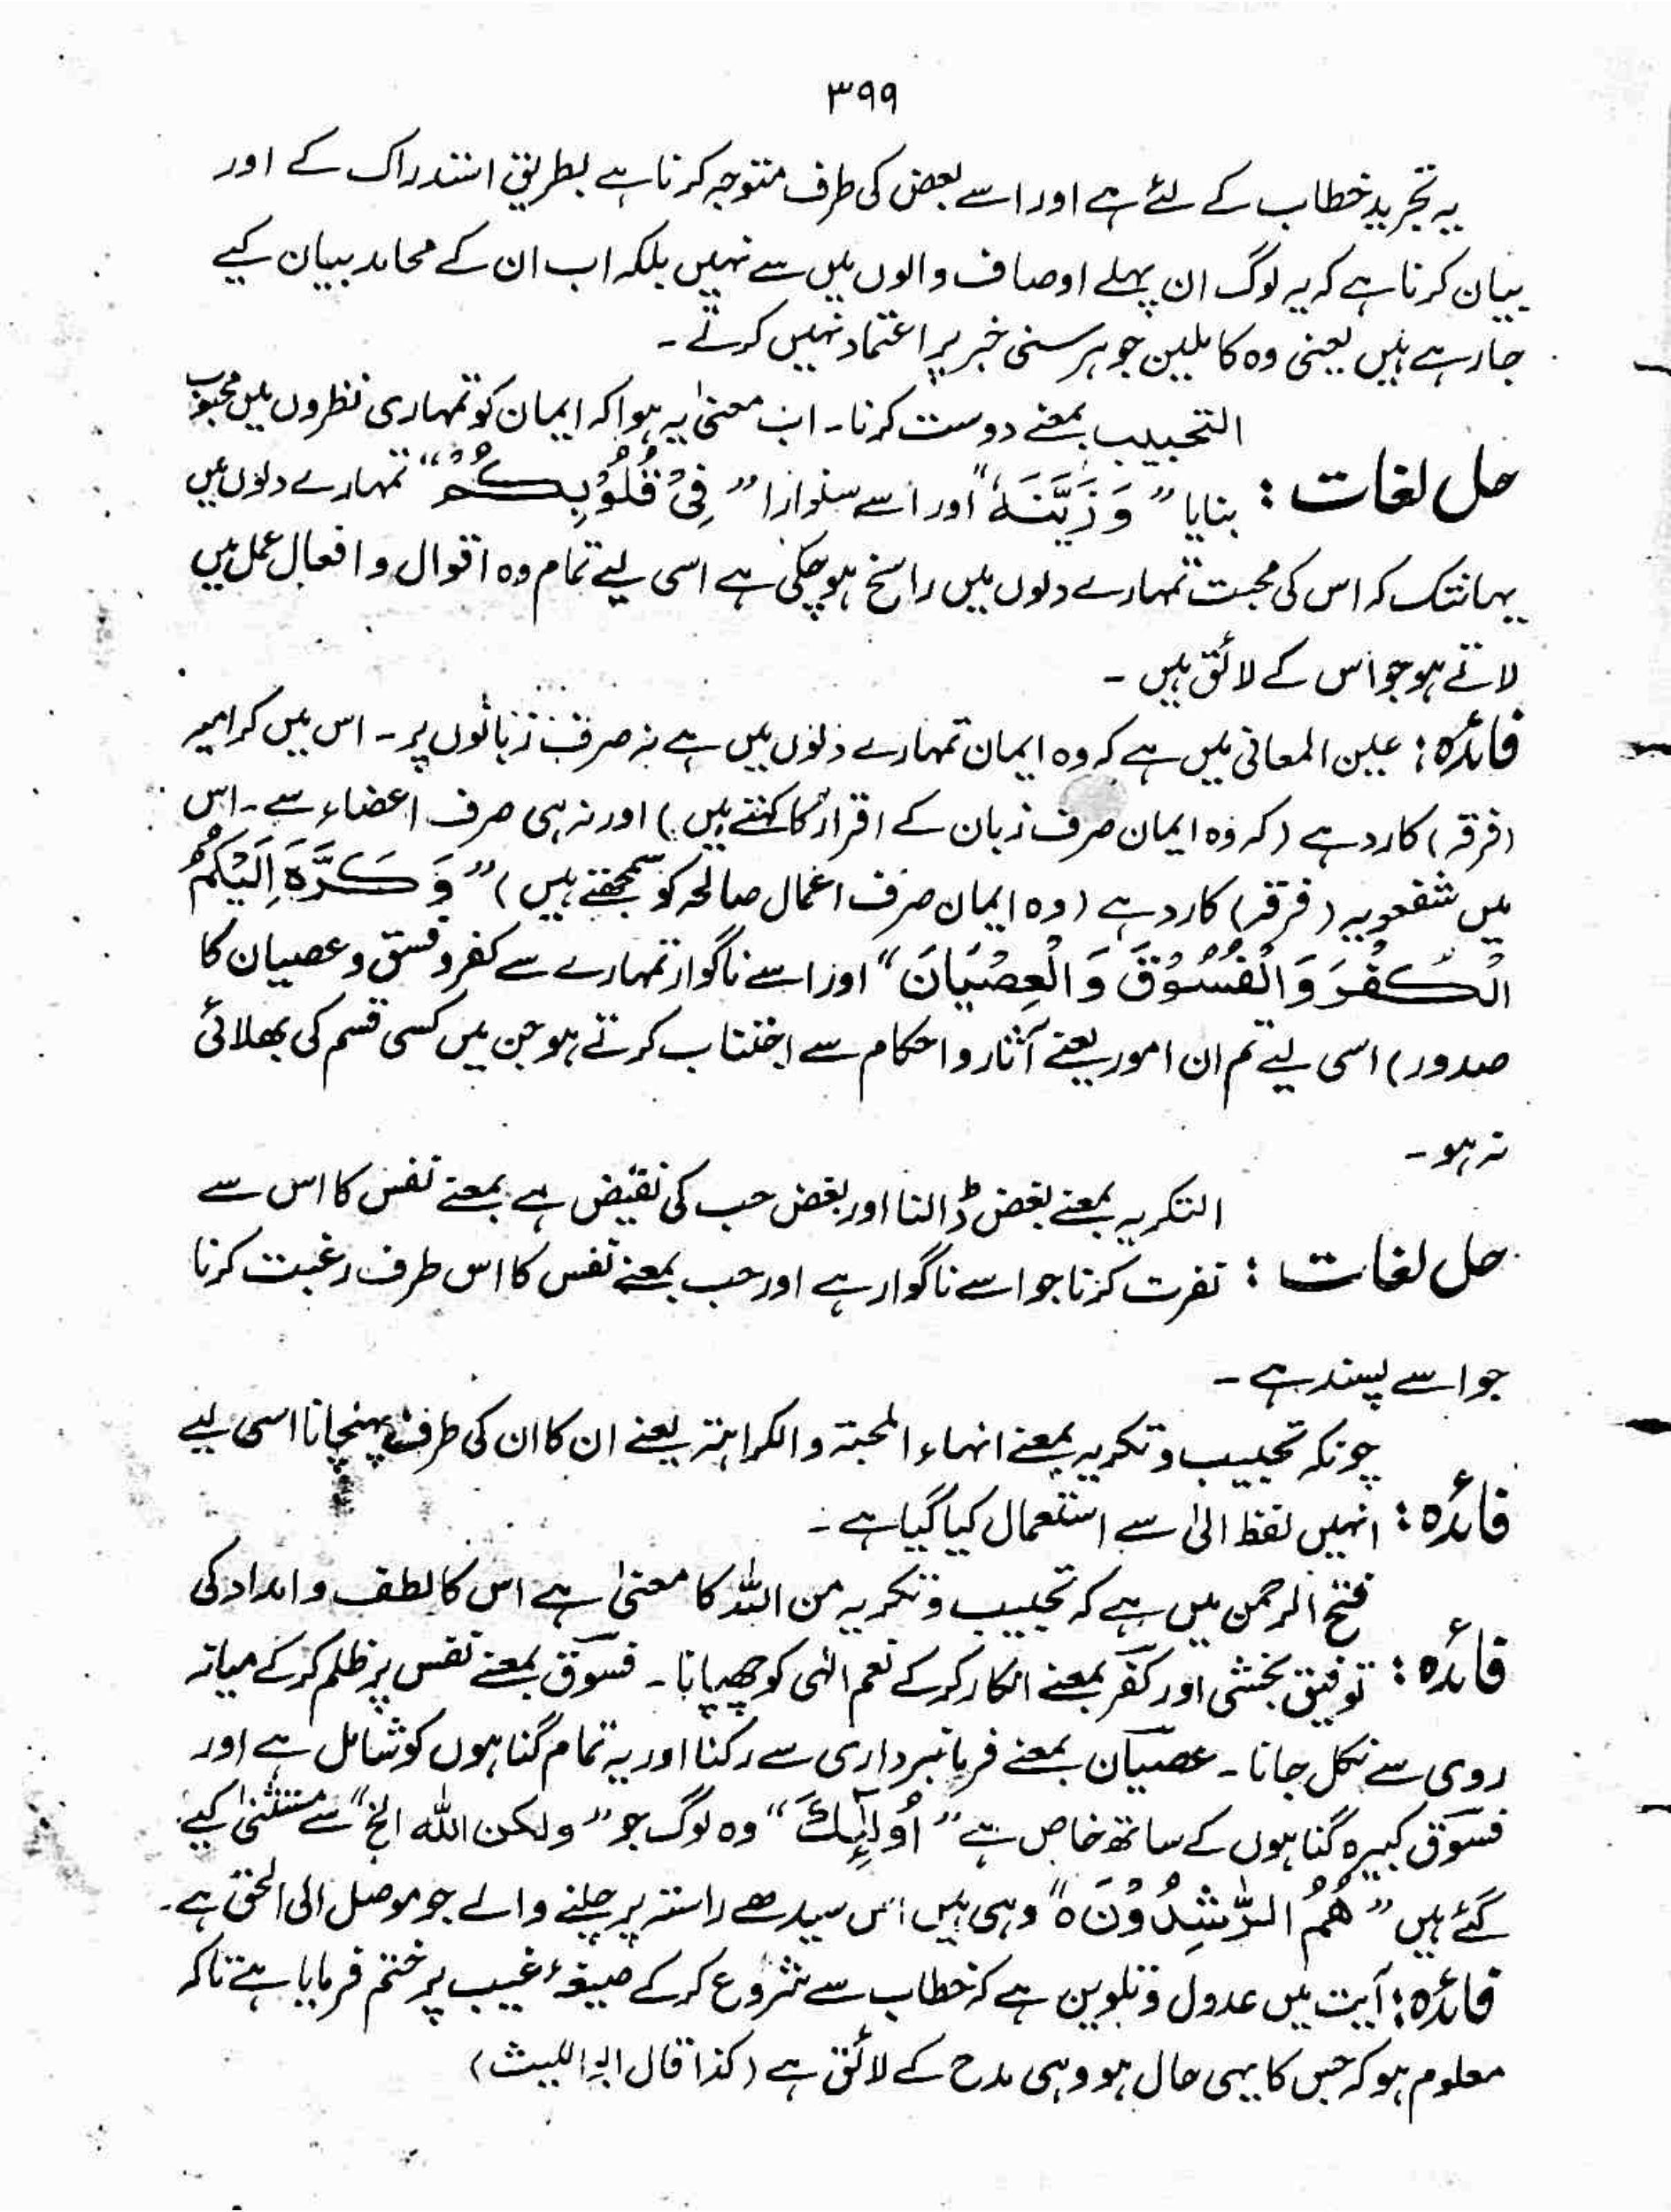 ۳۹۹
یہ تجرید خطاب کے لئے ہے اور اسے بعض کی طرف متوجہ کرنا ہے بطریق استدراک کے اور
بیان کرنا ہے کہ یہ لوگ ان پہلے اوصاف والوں میں سے نہیں بلکہ اب ان کے محامد بیان کیے
جا رہے ہیں یعنی وہ کاملین جو ہر سنی خبر پر اعتماد نہیں کرتے ۔
التحبیب بمعنے دوست کرنا ۔ اب معنیٰ یہ ہوا کہ ایمان کو تمہاری نظروں میں محبوب
حل لغات : بنایا ” وَزَيَّنَهٗ “ اور اسے سنوارا ” فِیْ قُلُوْبِکُمْ “ تمہارے دلوں میں
یہانتک کہ اس کی محبت تمہارے دلوں میں راسخ ہوچکی ہے اسی لیے تمام وہ اقوال و افعال عمل میں
لاتے ہو جو اس کے لائق ہیں ۔
فائدہ : عین المعانی میں ہے کہ وہ ایمان تمہارے دلوں میں ہے نہ صرف زبانوں پر ۔ اس میں کرامیہ
(فرقہ) کا رد ہے (کہ وہ ایمان صرف زبان کے اقرار کا کہتے ہیں) اور نہ ہی صرف اعضاء سے ۔ اس
میں شفعویہ (فرقہ) کا رد ہے (وہ ایمان صرف اعمال صالحہ کو سمجھتے ہیں) ” وَ کَرَّہَ اِلَیْکُمُ
الْکُفْرَ وَالْفُسُوْقَ وَ الْعِصْیَانَ “ اور اسے ناگوار تمہارے سے کفر و فسق و عصیان کا
صدور) اسی لیے تم ان امور یعنے آثار و احکام سے اجتناب کرتے ہو جن میں کسی قسم کی بھلائی
نہ ہو ۔
التکریہ بمعنے بغض ڈالنا اور بغض حب کی نقیض ہے بمعنے نفس کا اس سے
حل لغات : نفرت کرنا جو اسے ناگوار ہے اور حب بمعنے نفس کا اس طرف رغبت کرنا
جو اسے پسند ہے ۔
چونکہ تحبیب و تکریہ بمعنے انہاء المحبۃ والکراہتہ یعنے ان کا ان کی طرف پہنچانا اسی لیے
فائدہ : انہیں لفظ الیٰ سے استعمال کیا گیا ہے ۔
فتح الرحمن میں ہے کہ تحبیب و تکریہ من اللہ کا معنیٰ ہے اس کا لطف و امداد کی
فائدہ : توفیق بخشی اور کفر بمعنے انکار کرکے نعم الٰہی کو چھپانا ۔ فسوق بمعنے نفس پر ظلم کرکے میانہ
روی سے نکل جانا ۔ عصیان بمعنے فرمانبرداری سے رکنا اور یہ تمام گناہوں کو شامل ہے اور
فسوق کبیرہ گناہوں کے ساتھ خاص ہے ” اُولٰٓئِکَ “ وہ لوگ جو ” ولکن اللہ الخ “ سے مستثنیٰ کیے
گئے ہیں ” ہُمُ الرّٰشِدُوْنَ ہ “ وہی ہیں اس سیدھے راستہ پر چلنے والے جو موصل الی الحق ہے ۔
فائدہ : آیت میں عدول و تلوین ہے کہ خطاب سے شروع کرکے صیغۂ غیب پر ختم فرمایا ہے تاکہ
معلوم ہو کہ جس کا یہی حال ہو وہی مدح کے لائق ہے (کذا قال ابو اللیث)